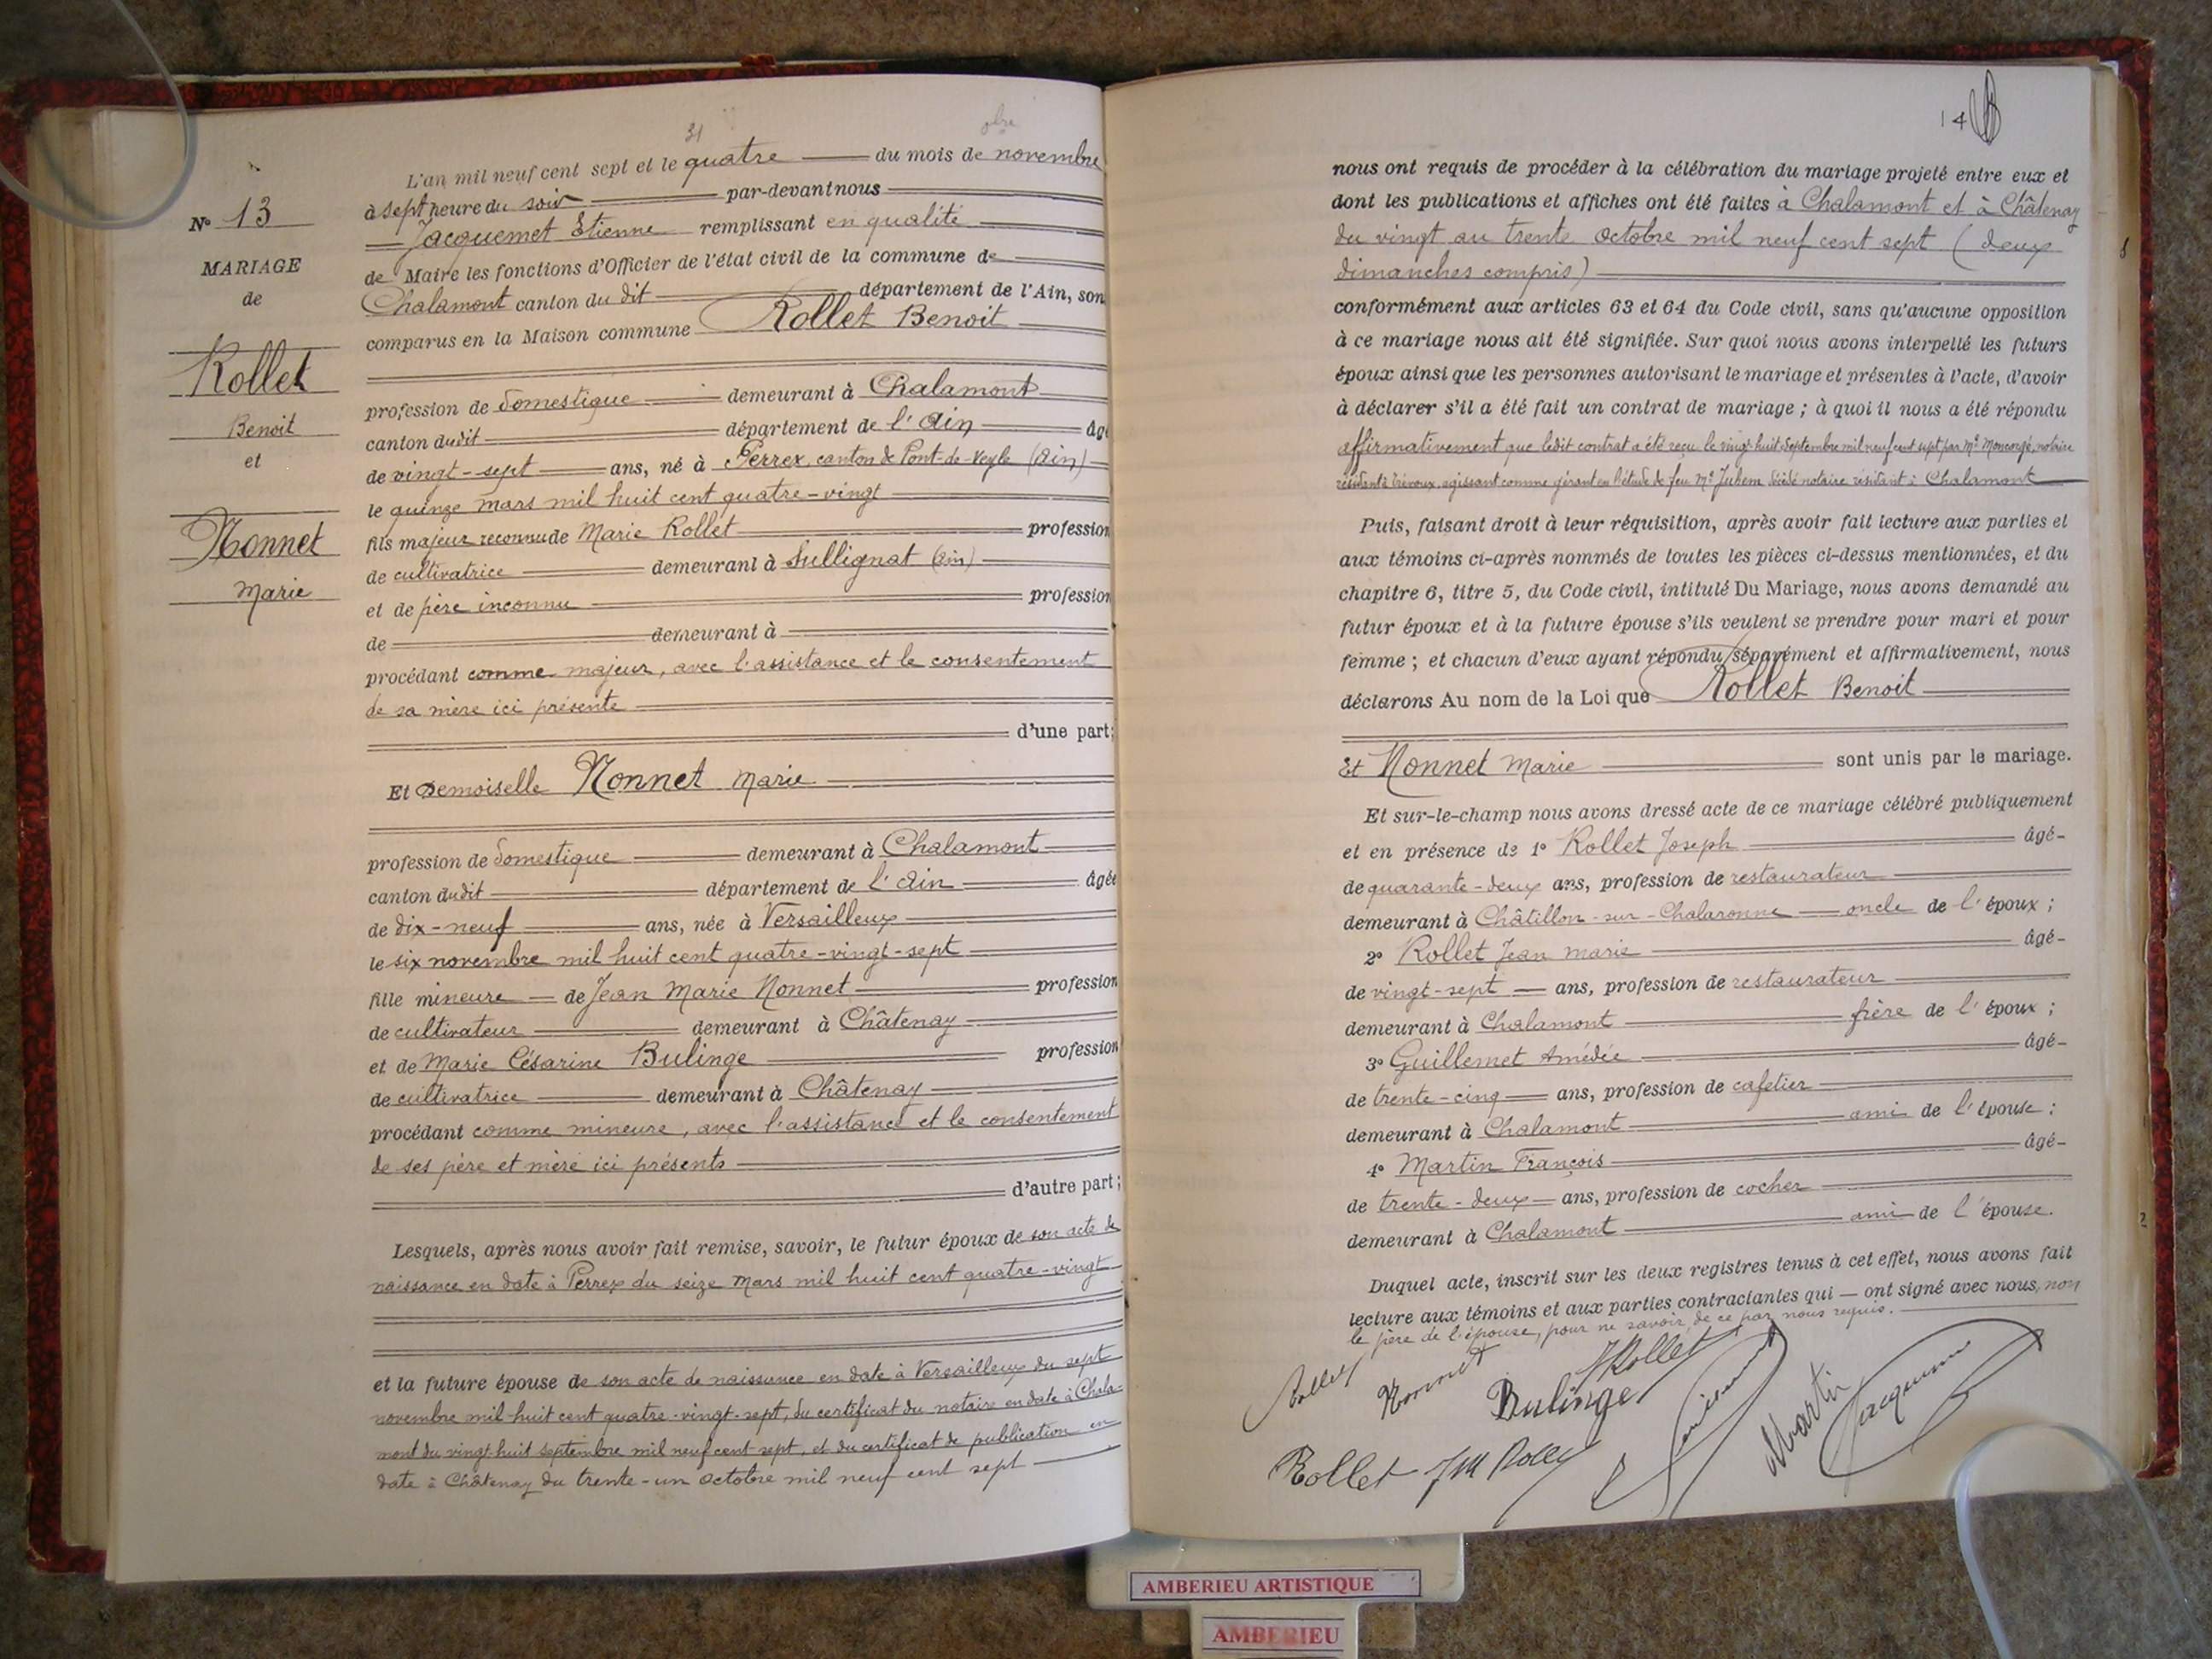 31 obre
L'an mil neuf cent sept et le quatre du mois de novembre
à sept heure du soir par-devant nous
Jacquemet Etienne remplissant en qualité
de Maire les fonctions d'Officier de l'état civil de la commune de
Chalamont canton du dit département de l'Ain, son
comparus en la Maison commune Rollet Benoit
profession de domestique demeurant à Chalamont
canton dudit département de l'Ain âgé
de vingt-sept ans, né à Perrex, canton de Pont-de-Veyle (Ain)
le quinze mars mil huit cent quatre-vingt
fils majeur reconnu de Marie Rollet profession
de cultivatrice demeurant à Sullignat (Ain)
et de père inconnu profession
de demeurant à
procédant comme majeur, avec l'assistance et le consentement
de sa mère ici présente
d'une part;
Et Demoiselle Nonnet Marie
profession de domestique demeurant à Chalamont
canton dudit département de l'Ain âgée
de dix-neuf ans, née à Versailleux
le six novembre mil huit cent quatre-vingt-sept
fille mineure de Jean Marie Nonnet profession
de cultivateur demeurant à Châtenay
et de Marie Césarine Bulinge profession
de cultivatrice demeurant à Châtenay
procédant comme mineure, avec l'assistance et le consentement
de ses père et mère ici présents
d'autre part;
Lesquels, après nous avoir fait remise, savoir, le futur époux de son acte de
naissance en date à Perrex du seize mars mil huit cent quatre-vingt
et la future épouse de son acte de naissance en date à Versailleux du sept
novembre mil huit cent quatre-vingt-sept, du certificat du notaire en date à Chala-
mont du vingt huit septembre mil neuf cent sept, et du certificat de publication en
date à Châtenay du trente-un octobre mil neuf cent sept
N° 13
MARIAGE
de
Rollet
Benoit
et
Nonnet
Marie
14
nous ont requis de procéder à la célébration du mariage projeté entre eux et
dont les publications et affiches ont été faites à Chalamont et à Châtenay
du vingt au trente octobre mil neuf cent sept (deux
dimanches compris)
conformément aux articles 63 et 64 du Code civil, sans qu'aucune opposition
à ce mariage nous ait été signifiée. Sur quoi nous avons interpellé les futurs
époux ainsi que les personnes autorisant le mariage et présentes à l'acte, d'avoir
à déclarer s'il a été fait un contrat de mariage; à quoi il nous a été répondu
affirmativement que ledit contrat a été reçu le vingt huit Septembre mil neuf cent sept par Me Moncorgé, notaire
résidant à Trévoux, agissant comme gérant en l'étude de feu Me Juhem décédé notaire résidant à Chalamont
Puis, faisant droit à leur réquisition, après avoir fait lecture aux parties et
aux témoins ci-après nommés de toutes les pièces ci-dessus mentionnées, et du
chapitre 6, titre 5, du Code civil, intitulé Du Mariage, nous avons demandé au
futur époux et à la future épouse s'ils veulent se prendre pour mari et pour
femme; et chacun d'eux ayant répondu séparément et affirmativement, nous
déclarons Au nom de la Loi que Rollet Benoit
Et Nonnet Marie sont unis par le mariage.
Et sur-le-champ nous avons dressé acte de ce mariage célébré publiquement
et en présence de 1° Rollet Joseph âgé-
de quarante-deux ans, profession de restaurateur
demeurant à Châtillon-sur-Chalaronne oncle de l'époux;
2° Rollet Jean Marie âgé-
de vingt-sept ans, profession de restaurateur
demeurant à Chalamont frère de l'époux;
3° Guillemet Amédée âgé-
de trente-cinq ans, profession de cafetier
demeurant à Chalamont ami de l'épouse;
4° Martin François âgé-
de trente-deux ans, profession de cocher
demeurant à Chalamont ami de l'épouse.
Duquel acte, inscrit sur les deux registres tenus à cet effet, nous avons fait
lecture aux témoins et aux parties contractantes qui — ont signé avec nous, non
le père de l'épouse, pour ne savoir, de ce par nous requis.
Rollet Nonnet J Rollet
Bulinge Martin Jacquemet
Rollet JM Rollet
AMBERIEU ARTISTIQUE
AMBERIEU